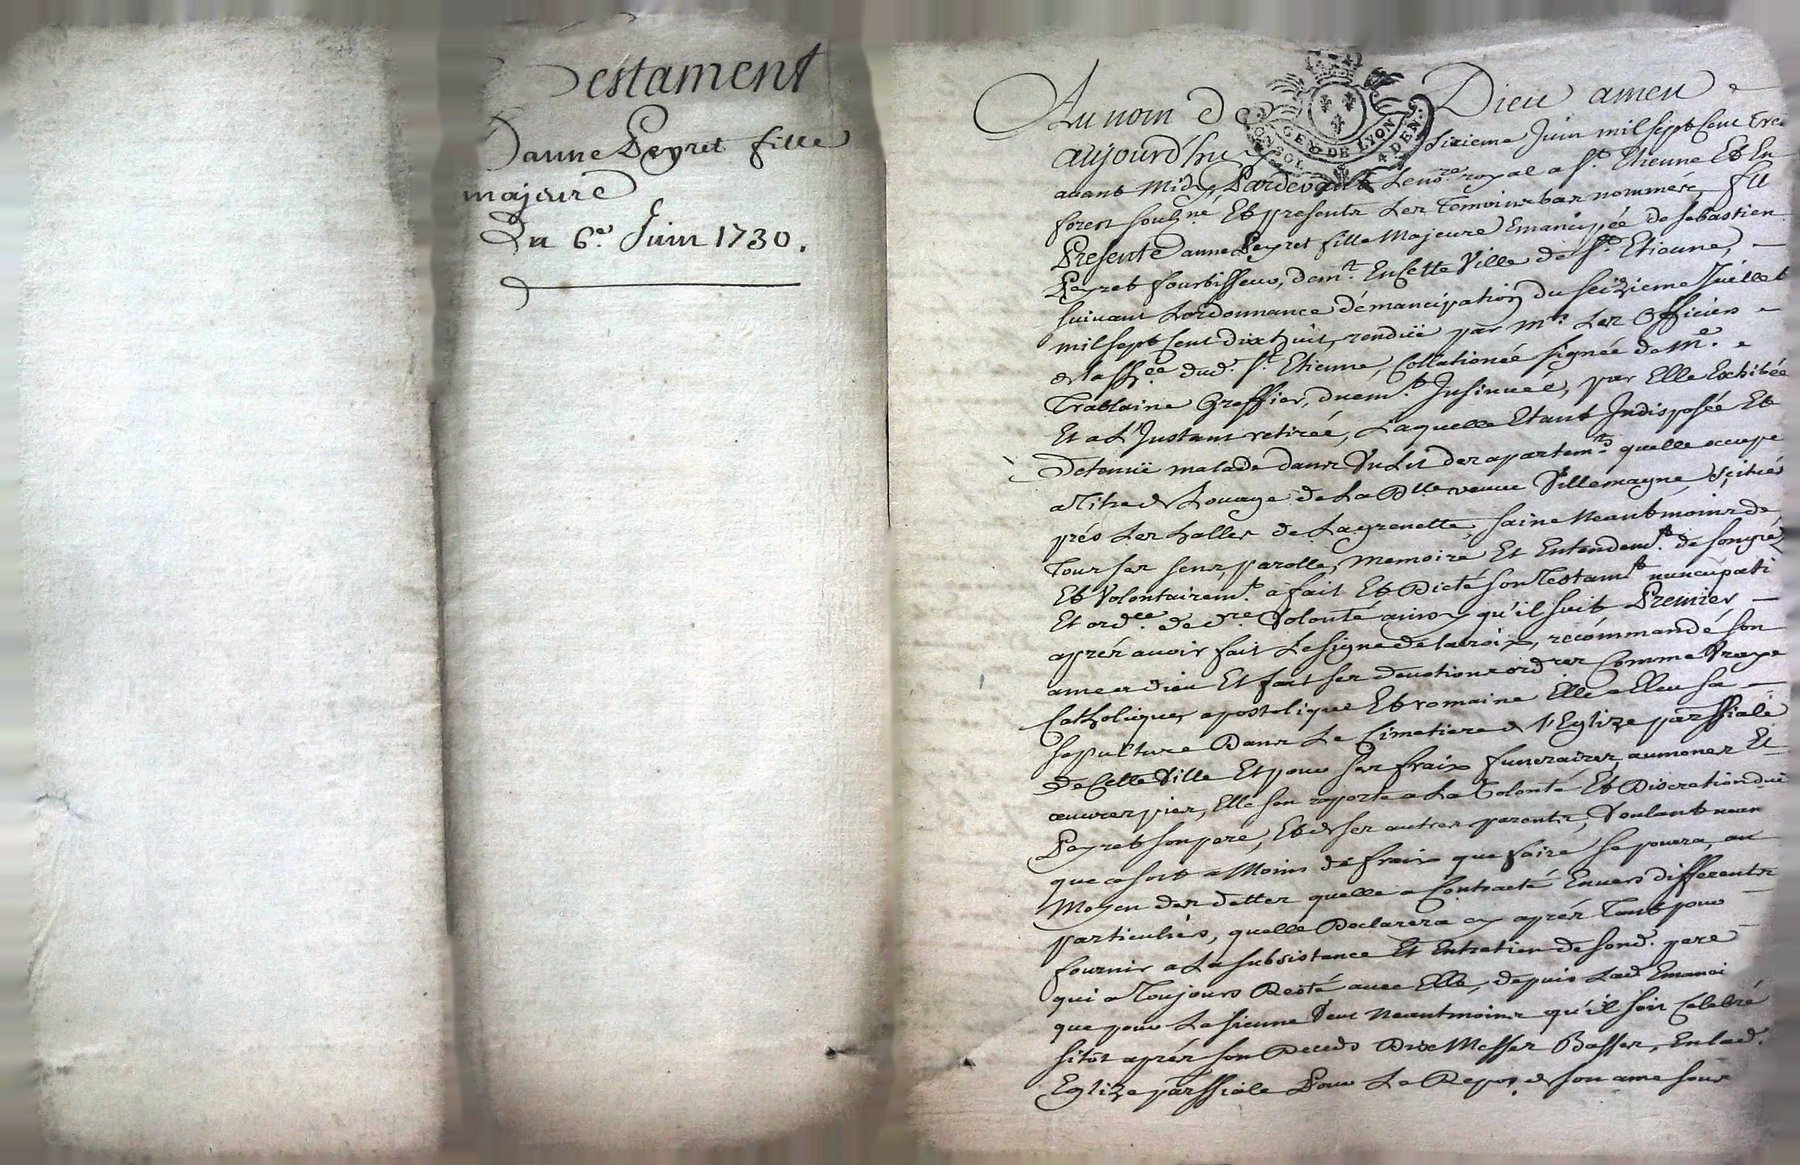 Testament
D'anne Peyret fille
majeure
Du 6.e Juin 1730.
Au nom de Dieu amen
GEN. DE LYON
4 DEN.
aujourd'huy Sixieme Juin mil sept cent tre
avant midy Pardevant Le no.re royal a S.t Etienne Et En
forest souz.né Et presents Les temoins bas nommés, fu
Presente anne Peyret fille Majeure Emancipée de sebastien
Peyret fourbisseur, dem.t En Cette Ville de S.t Etienne,
suivant Lordonnance démancipation du seizieme Juillet
mil sept Cent dix huit, rendüe par m.rs Les Officiers
dud. S.t Etienne, Collationée signée de M.e
Trablaine Greffier, duem.t Insinuée, par Elle Exhibée
Et a L'Instant retirée, Laquelle Etant Indisposée Et
Detenuë malade dans Un Lit des apartem.ts quelle occupe
a Titre de Louage de La D.lle veuve Villemagne, scitué
prés Les halles de Lagrenette, saine Neantmoins de
Tous ses sens, parolle, Memoire Et Entendem.t de son gré
Et Volontairem.t a fait Et Dicté son Testam.t nuncupati
Et ord.ce de d.re Volonté ainsy qu'il suit Premier
aprés avoir fait Le signe de la croix, recommandé son
ame a dieu Et fait ses devotions ord.res Comme Vraye
Catholique, apostolique Et romaine Elle a Eleu sa
sepulture Dans Le Cimetiere de l'Eglize parssiale
de Cette Ville Et pour ses fraix funeraires, aumones Et
œuvres pies, Elle son raporte a La Volonté Et Discretion dud
Peyret son pere, Et de ses autres parents, Voulant nean
que ce soit a Moins de fraix que faire se poura, au
Moyen des dettes quelle a Contracté Envers differents
particuliers, quelle Declarera cy aprés Tant pour
fournir a La subsistance Et Entretien de son d. pere
qui a Toujours Resté avec Elle, depuis Lad. Emanci
que pour La sienne Veut Neantmoins qu'il soit Celebré
sitot aprés son Deceds Dix Messes Basses, En lad.
Eglize parssiale Pour Le Repos de son ame sous